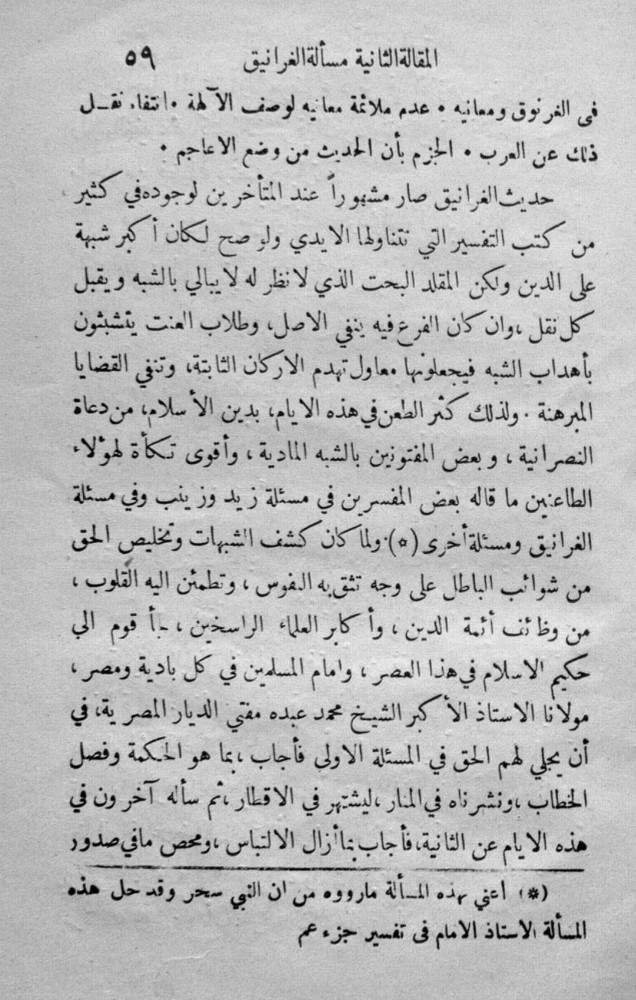 المقالة الثانية مسألة الغرانيق ٥٩
في الغرنوق ومعانيه • عدم ملائمة معانيه لوصف الآلهة • انتفاء نقـل
ذلك عن العرب • الجزم بأن الحديث من وضع الاعاجم •
حديث الغرانيق صار مشهوراً عند المتأخرين لوجوده في كثير
من كتب التفسير التي تتناولها الايدي ولو صح لكان أكبر شبهة
على الدين ولكن المقلد البحت الذي لا نظر له لا يبالي بالشبه ويقبل
كل نقل ، وان كان الفرع فيه ينفي الاصل، وطلاب العنت يتشبثون
بأهداب الشبه فيجعلونها معاول تهدم الاركان الثابتة، وتنفي القضايا
المبرهنة . ولذلك كثر الطعن في هذه الايام، بدين الأسلام، من دعاة
النصرانية ، وبعض المفتونين بالشبه المادية ، وأقوى تكأة لهؤلاء
الطاعنين ما قاله بعض المفسرين في مسئلة زيد وزينب وفي مسئلة
الغرانيق ومسئلة أخرى (*) ولما كان كشف الشبهات وتخليص الحق
من شوائب الباطل على وجه تثق به النفوس ، وتطمئن اليه القلوب ،
من وظائف أئمة الدين ، وأكابر العلماء الراسخين ، لجأ قوم الى
حكيم الاسلام في هذا العصر ، وامام المسلمين في كل بادية ومصر ،
مولانا الاستاذ الأكبر الشيخ محمد عبده مفتي الديار المصرية، في
أن يجلي لهم الحق في المسئلة الاولى فأجاب ، بما هو الحكمة وفصل
الخطاب ، ونشرناه في المنار ، ليشتهر في الاقطار ، ثم سأله آخرون في
هذه الايام عن الثانية، فأجاب بما أزال الالتباس ، ومحص ما في صدور
(*) أعني بهذه المسألة ما رووه من ان النبي سحر وقد حل هذه
المسألة الاستاذ الامام في تفسير جزء عم